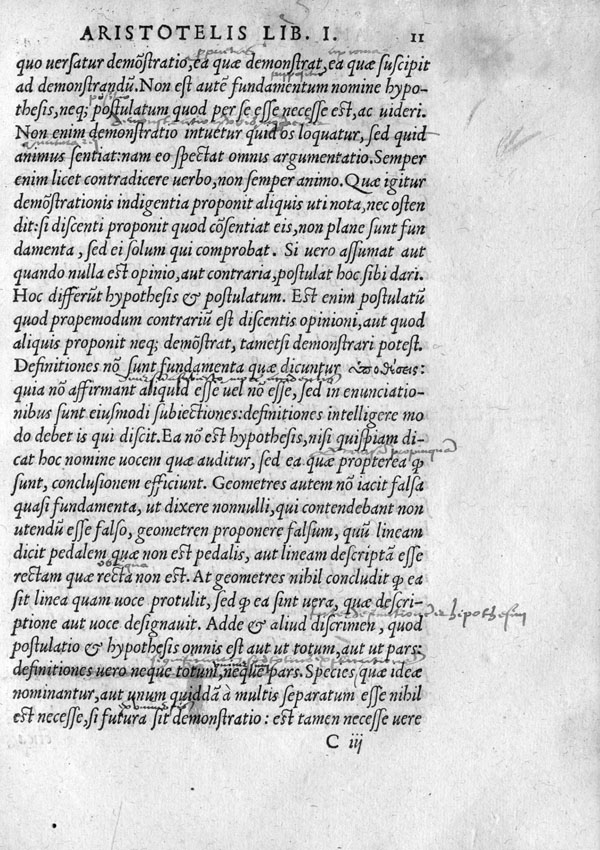 ARISTOTELIS LIB. I. 11
quo versatur demõstratio, ea quæ demonstrat, ea quæ suscipit
ad demonstrandũ. Non est autẽ fundamentum nomine hypo-
thesis, neq; postulatum quod per se esse necesse est, ac uideri.
Non enim demonstratio intuetur quid os loquatur, sed quid
animus sentiat: nam eo spectat omnis argumentatio. Semper
enim licet contradicere uerbo, non semper animo. Quæ igitur
demõstrationis indigentia proponit aliquis uti nota, nec osten
dit: si discenti proponit quod cõsentiat eis, non plane sunt fun
damenta, sed ei solum qui comprobat. Si uero assumat aut
quando nulla est opinio, aut contraria, postulat hoc sibi dari.
Hoc differũt hypothesis & postulatum. Est enim postulatũ
quod propemodum contrariũ est discentis opinioni, aut quod
aliquis proponit neq; demõstrat, tametsi demonstrari potest.
Definitiones nõ sunt fundamenta quæ dicuntur ὑποθέσεις:
quia nõ affirmant aliquid esse uel nõ esse, sed in enunciatio-
nibus sunt eiusmodi subiectiones: definitiones intelligere mo
do debet is qui discit. Ea nõ est hypothesis, nisi quispiam di-
cat hoc nomine uocem quæ auditur, sed ea quæ propterea ꝙ
sunt, conclusionem efficiunt. Geometres autem nõ iacit falsa
quasi fundamenta, ut dixere nonnulli, qui contendebant non
utendũ esse falso, geometren proponere falsum, quũ lineam
dicit pedalem quæ non est pedalis, aut lineam descriptã esse
rectam quæ recta non est. At geometres nihil concludit ꝙ ea
sit linea quam uoce protulit, sed ꝙ ea sint uera, quæ descri-
ptione aut uoce designauit. Adde & aliud discrimen, quod
postulatio & hypothesis omnis est aut ut totum, aut ut pars:
definitiones uero neque totum, neque pars. Species quæ ideæ
nominantur, aut unum quiddã à multis separatum esse nihil
est necesse, si futura sit demonstratio: est tamen necesse uere
C iij